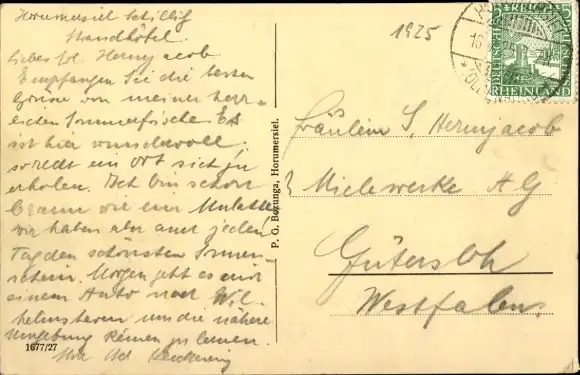 Horumersiel Schillig
Strandhotel.
Liebes Frl. Hermjacob
Empfangen Sie die besten
Grüsse von meiner herr-
lichen Sommerfrische. Es
ist hier wundervoll,
so recht ein Ort sich zu
erholen. Ich bin schon
braun wie ein Mulatte
wir haben aber auch jeden
Tag den schönsten Sonnen-
schein. Morgen geht es mit
einem Auto nach Wil-
helmshaven um die nähere
Umgebung kennen zu lernen.
Ihre
1677/27
P. G. Bozunga, Horumersiel.
1925
DEUTSCHES REICH
RHEINLAND
5
Fräulein S. Hermjacob
Mielewerke A G
Gütersloh
Westfalen.